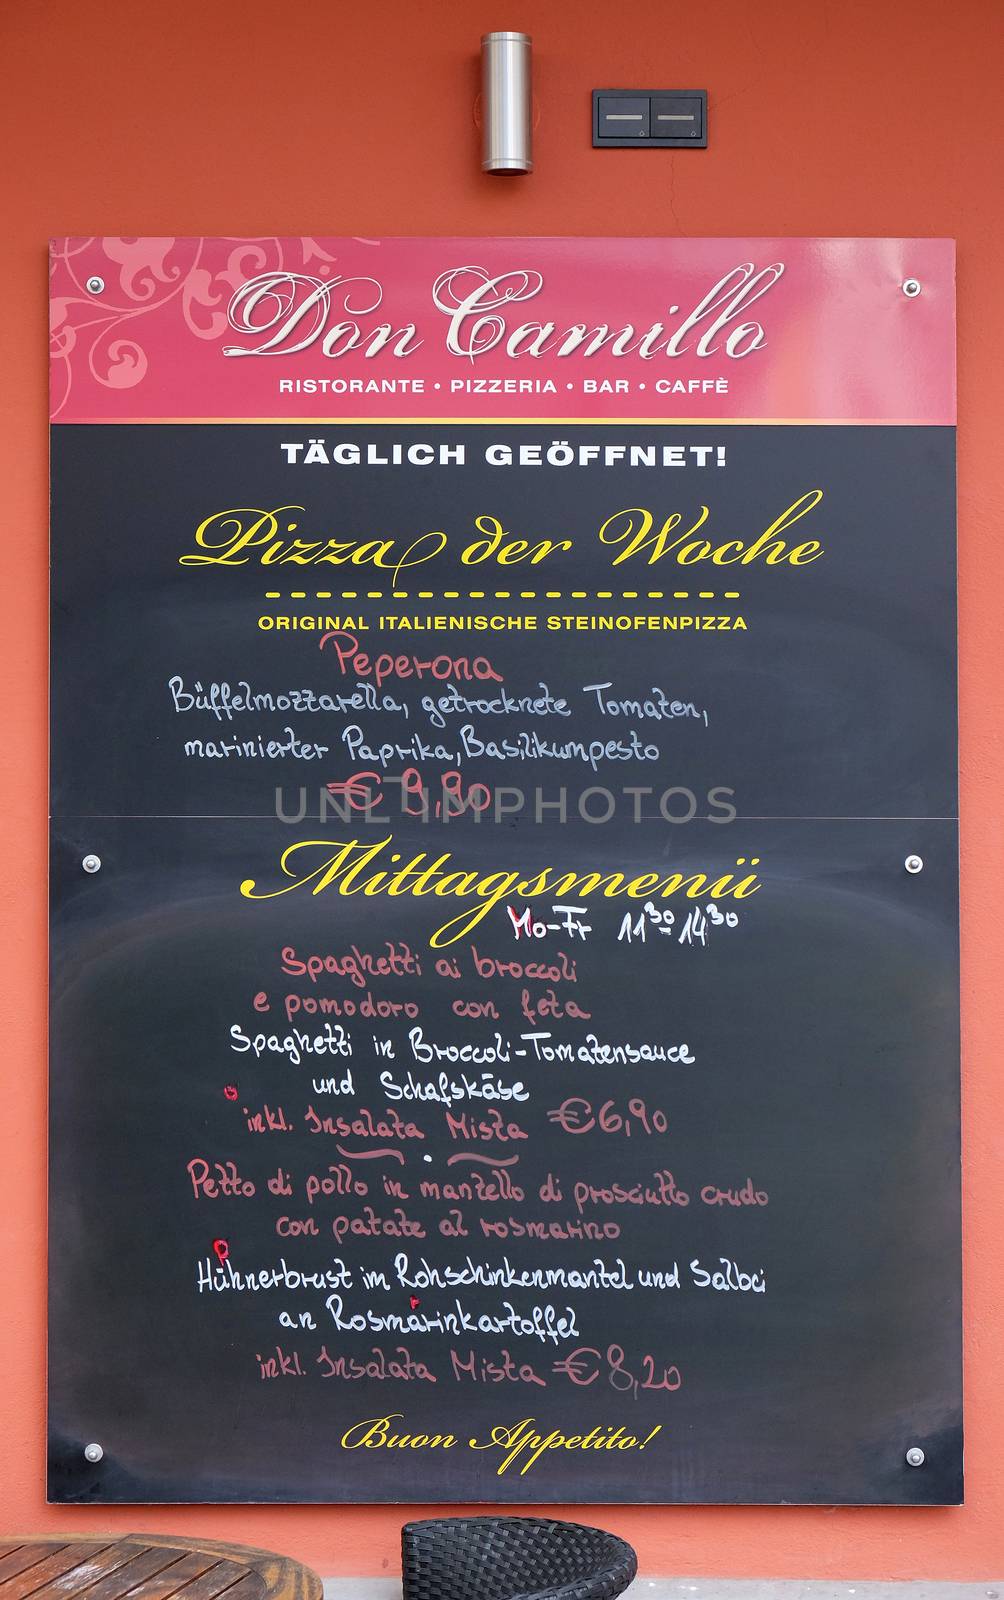 Don Camillo
RISTORANTE • PIZZERIA • BAR • CAFFÈ
TÄGLICH GEÖFFNET!
Pizza der Woche
ORIGINAL ITALIENISCHE STEINOFENPIZZA
Peperona
Büffelmozzarella, getrocknete Tomaten,
marinierter Paprika, Basilikumpesto
€ 9,90
Mittagsmenü
Mo-Fr 11³⁰-14³⁰
Spaghetti ai broccoli
e pomodoro con feta
Spaghetti in Broccoli-Tomatensauce
und Schafskäse
inkl. Insalata Mista €6,90
Petto di pollo in mantello di prosciutto crudo
con patate al rosmarino
Hühnerbrust im Rohschinkenmantel und Salbei
an Rosmarinkartoffel
inkl. Insalata Mista €8,20
Buon Appetito!